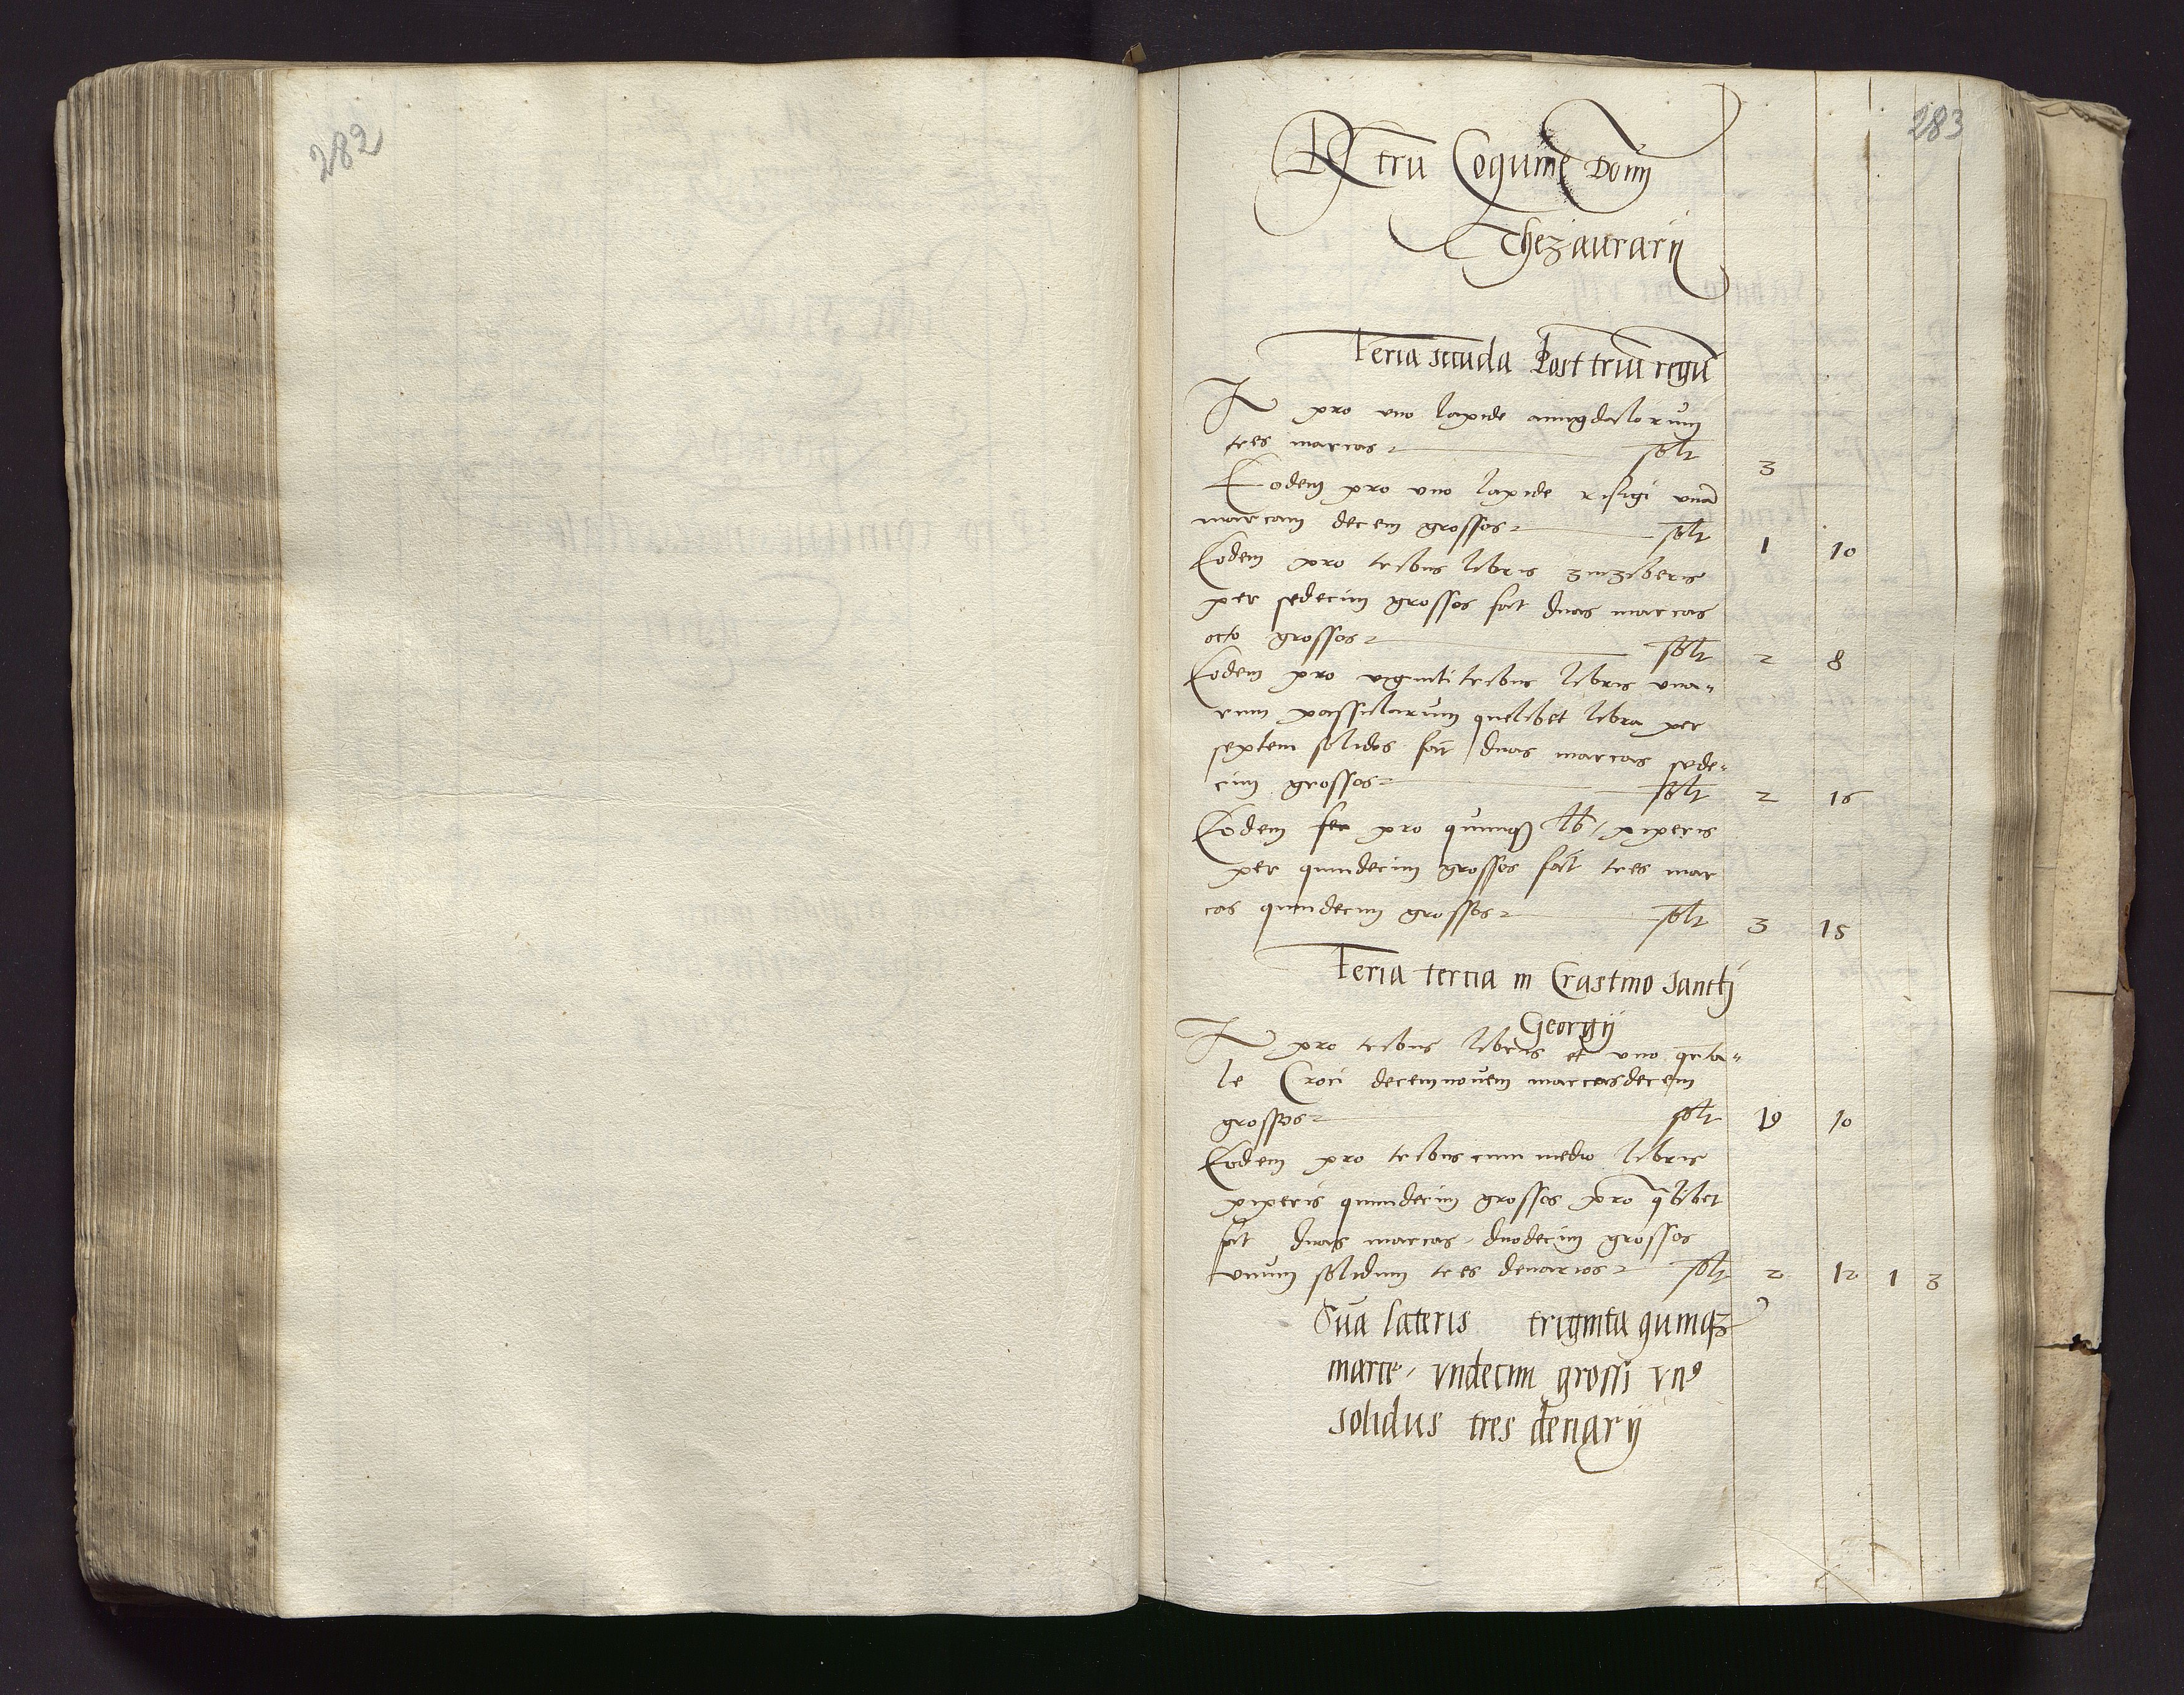 282
283
Rtru Coquine Domi
Thezaurarii
Feria secuda Post triu regu
It pro uno lapide amigdalorum
tres marcas solt 3
Eodem pro uno lapide risigi una
marcam decem grossos solt 1 10
Eodem pro tribus libris zinziberis
per sedecim grossos fat duas marcas
octo grossos solt 2 8
Eodem pro vigintitribus libris uva-
rum passularum quelibet libra per
septem solidos fat duas marcas sede-
cim grossos solt 2 16
Eodem pro quinqz lb piperis
per quindecim grossos fat tres mar
cas quindecim grossos solt 3 15
Feria tercia in Crastino sancti
Georgii
It pro tribus libris et uno qrta-
le Croci decemnovem marcas decem
grossos solt 19 10
Eodem pro tribus cum medio libris
piperis quindecim grossos pro qlibet
fat duas marcas duodecim grossos
unum solidum tres denarios solt 2 12 1 3
Sua lateris triginta quinqz
marce undecim grossi vn9
solidus tres denarii